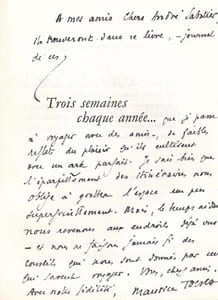 A mes amis Chers André Sabatier,
ils trouveront dans ce livre, – journal
de ces
Trois semaines
chaque année... que je passe
à voyager avec des amis –, de faibles
reflets du plaisir qu'ils cultivent
avec un art parfait. Je sais bien que
l'éparpillement des itinéraires nous
oblige à goûter l'espace un peu
superficiellement. Mais, le temps aidant
nous revenons aux endroits déjà vus
– et nous ne faisons jamais fi des
conseils qui nous sont donnés par ceux
qui savent voyager. Vous, chers amis.
Avec notre fidélité, Maurice